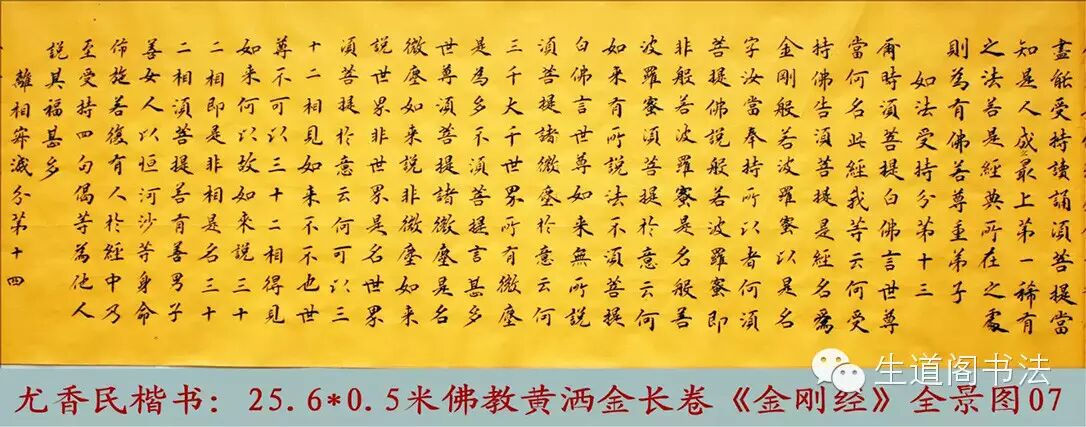 盡能受持讀誦須菩提當
知是人成最上第一稀有
之法若是經典所在之處
則為有佛若尊重弟子
如法受持分第十三
爾時須菩提白佛言世尊
當何名此經我等云何受
持佛告須菩提是經名為
金剛般若波羅蜜以是名
字汝當奉持所以者何須
菩提佛說般若波羅蜜即
非般若波羅蜜是名般若
波羅蜜須菩提於意云何
如來有所說法不須菩提
白佛言世尊如來無所說
須菩提諸微塵於意云何
三千大千世界所有微塵
是為多不須菩提言甚多
世尊須菩提諸微塵是名
微塵如來說非微塵如來
說世界非世界是名世界
須菩提於意云何可以三
十二相見如來不不也世
尊不可以三十二相得見
如來何以故如來說三十
二相即是非相是名三十
二相須菩提若有善男子
善女人以恒河沙等身命
佈施若復有人於經中乃
至受持四句偈等為他人
說其福甚多
離相寂滅分第十四
生道阁书法
尤香民楷书：25.6*0.5米佛教黄洒金长卷《金刚经》全景图07